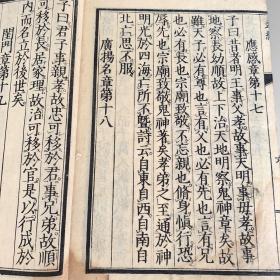 應感章第十七
子曰昔者明王事父孝故事天明事母孝故事
地察長幼順故上下治天地明察鬼神章矣故
雖天子必有尊也言有父也必有先也言有兄
也必有長也宗廟致敬不忘親也脩身慎行恐
辱先也宗廟致敬鬼神著矣孝弟之至通於神
明光於四海亡所不曁詩云自東自西自南自
北亡思不服
廣揚名章第十八
子曰君子事親孝故忠可移於君事兄弟故順
可移於長居家理故治可移於官是以行成於
內而名立於後世矣
閨門章第十九